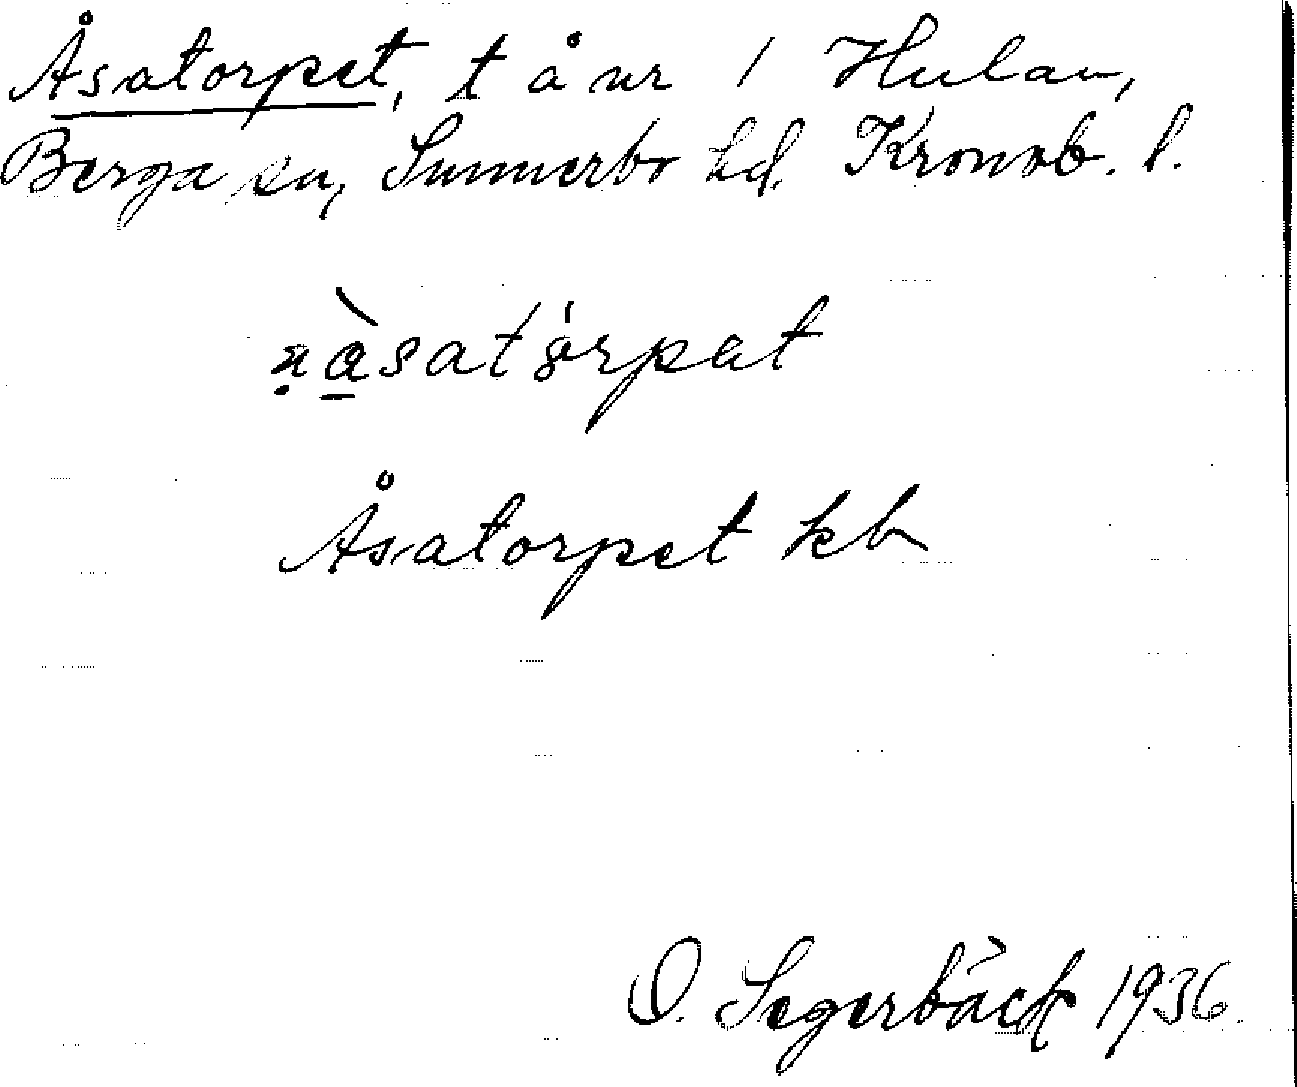 Åsatorpet, t å nr 1 Hulan,
Berga sn, Sunnerbo hd. Kronob. l.
Åsatorpet kb
O. Segerbäck 1936.